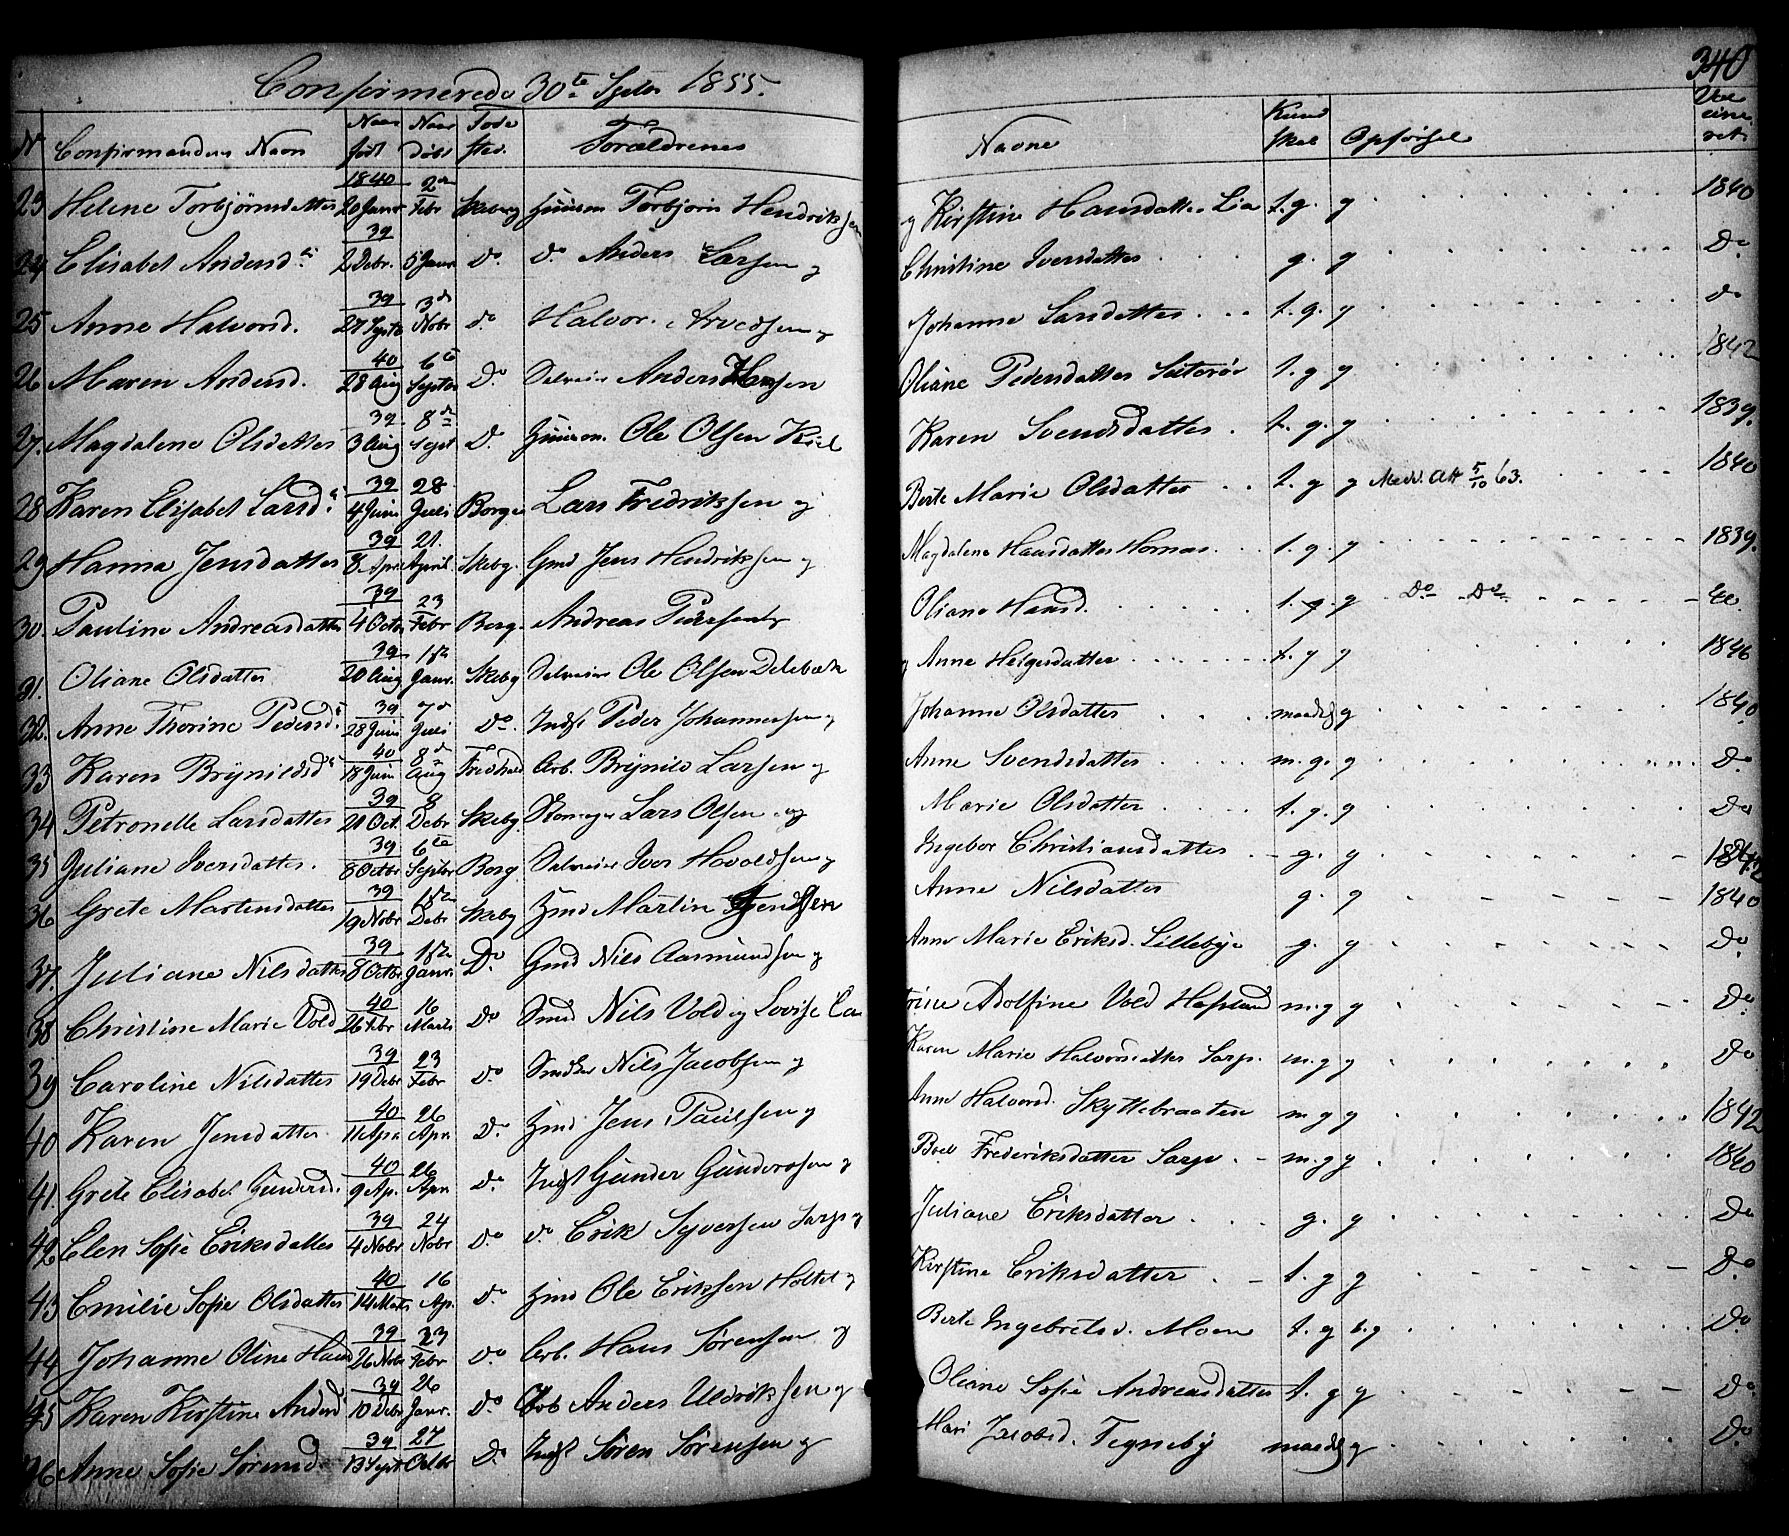 340
Confirmerede 30te Septbr 1855.
No Confirmandens Navn Naar født Naar døbt Føde sted. Forældrenes Navne Kund skab Opførsel Vac cine ret
23 Helene Torbjørnsdatter 1840 20 Janr 2den Febr Skeberg Huusm Torbjørn Hendriksen og Kirstine Hansdatter Lie t.g. g 1840
24 Elisabet Andersd. 39 2 Debr. 5 Janr Do Do Anders Larsen og Christine Iversdatter g. g Do
25 Anne Halvorsd. 39 27 Septb 3de Nobr do Halvor Arvedsen og Johanne Larsdatter t.g. g do
26 Maren Andersd. 40 28 Aug 6te Septbr Do Anders Hansen Oliane Pedersdatter t.g g 1842
27. Magdalene Olsdatter 39. 3 Aug 8de Sept Do Huusm. Ole Olsen Karen Svendsdatter t.g. g 1839.
28 Karen Elisabet Larsd. 39 4 Juni 28 Juli Borge Lars Fredriksen og Berte Marie Olsdatter t.g g Medd. Att 5/10 63. 1840
29 Hanna Jensdatter 39 8 Apr. 21. April Skebg. Gmd Jens Hendriksen og Magdalene Hansdatter Hornæs. t.g. g 1839.
30. Pauline Andreasdatter 39 4 Octb 23 Febr Borg. Andreas Pedersen Oliane Hansd. t.g. g Do Do
31. Oliane Olsdatter 39 20 Aug 1ste Janr. Skebg Ole Olsen Delebæk og Anne Helgesdatter t.g g 1840
32. Anne Thorine Pedersd. 39 28 Juni 7de Juli Do. Indst Peder Johannesen og Johanne Olsdatter maadel g 1840
33 Karen Brynildsd. 40 18 Juni 8de Aug Fredhald Arb. Brynild Larsen og Anne Svendsdatter m.g. g Do
34 Petronelle Larsdatter 39 21 Oct. 8 Debr Skebg. Lars Olsen og Marie Olsdatter t.g. g Do
35 Juliane Iversdatter. 39 8 Octbr 6te Septbr Borg Iver Havoldsen og Ingebor Christiansdatter g. g 1842
36 Grete Martensdatter 39 19 Nobr 1ste Debr Skebg Hmd Martin Svendsen Anne Nilsdatter g. g 1840
37. Juliane Nilsdatter 39 8 Octbr 1ste Janr. Do Gmd Nils Aasmundsen og Anne Marie Eriksd. Lillebye g. g Do
38 Christine Marie Vold 40 26 Febr 16 Marts Do Smed Nils Vold og Lovise Catrine Adolfine Vold Hafslund m.g g Do
39 Caroline Nilsdatter 39 19 Debr 23 Febr Do Nils Jacobsen og Karen Marie Halvorsdatter Sarp. m.g g Do
40 Karen Jensdatter 40 11 Apr 26 Apr. Do Hmd Jens Paulsen og Anne Halvorsd. Skyttebraaten m.g g 1842
41. Grete Elisabet Gundersd. 40 9 Ap. 26 Apr. Do Indst Gunder Gundersen og Boel Frederiksdatter Sarp. m.g g 1840
42 Elen Sofie Eriksdatter 39 4 Nobr 24 Nobr Do do Erik Syversen Sarp og Juliane Eriksdatter g. g Do
43 Emilie Sofie Olsdatter 40 14 Marts 16 Ap. Do Hmd Ole Eriksen Holtet og Kirstine Eriksdatter t.g g Do
44 Johanne Oline Hansd 39 26 Nobr 23 Febr Do Arb. Hans Sørensen og Berte Ingebretsd. Moen t.g t.g Do
45 Karen Kirstine Andersd 39 10 Debr 26 Janr. Do Arb Anders Uldriksen og Oliane Sofie Andreasdatter t.g g Do
46 Anne Sofie Sørensd 39 13 Sept 27 Octbr Do Indst Søren Sørensen og Mari Jacobsd. Tegneby maadel g Do